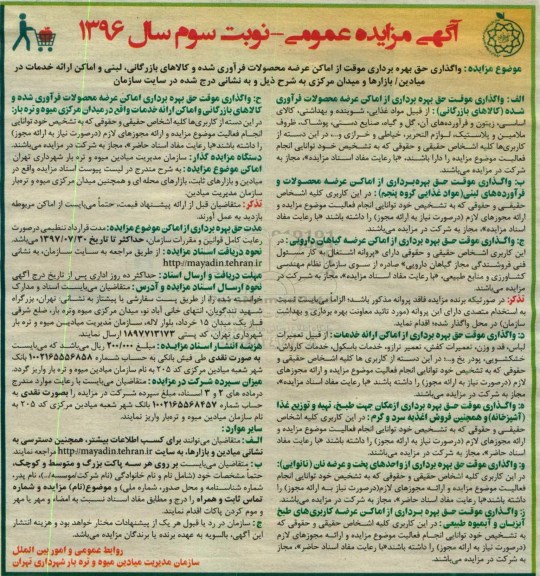 آگهی مزایده عمومی - نوبت سوم سال ۱۳۹۶
موضوع مزایده : واگذاری حق بهره برداری موقت از اماکن عرضه محصولات فرآوری شده و کالاهای بازرگانی، لبنی و اماکن ارائه خدمات در
میادین/ بازارها و میدان مرکزی به شرح ذیل و به نشانی درج شده در سایت سازمان
الف : واگذاری موقت حق بهره برداری از اماکن عرضه محصولات فرآوری
شده (کالاهای بازرگانی) : از قبیل مواد غذایی، شوینده و بهداشتی، کالای
اساسی، زیتون و فرآورده‌های آن، گل و گیاه، صنایع دستی، پوشاک، ظروف
ملامین و پلاستیک، لوازم التحریر، خیاطی و خرازی و... در این دسته از
کاربری‌ها کلیه اشخاص حقیقی و حقوقی که به تشخیص خود توانایی انجام
فعالیت موضوع مزایده را دارا باشند، «با رعایت مفاد اسناد مزایده»، مجاز به
شرکت در مزایده می‌باشند.
ب: واگذاری موقت حق بهره‌برداری از اماکن عرضه محصولات و
فرآورده‌های لبنی( مواد غذایی گروه پنجم) : در این کاربری کلیه اشخاص
حقیقی و حقوقی که به تشخیص خود توانایی انجام فعالیت موضوع مزایده و
ارائه مجوزهای لازم (درصورت نیاز به ارائه مجوز) را داشته باشند «با رعایت مفاد
اسناد مزایده»، مجاز به شرکت در مزایده می‌باشند.
ج: واگذاری موقت حق بهره برداری از اماکن عرضه گیاهان دارویی : در
این کاربری اشخاص حقیقی و حقوقی دارای «پروانه اشتغال به کار مسئول
فنی فروشندگی مجاز گیاهان دارویی» صادره از سوی سازمان نظام مهندسی
کشاورزی و منابع طبیعی «با رعایت مفاد اسناد مزایده»، مجاز به شرکت در
مزایده می‌باشند.
تذکر: در صورتیکه برنده مزایده فاقد پروانه مذکور باشد؛ الزاماً می‌بایست نسبت
به استخدام متصدی دارای این پروانه (مورد تائید معاونت بهره برداری و بهداشت
سازمان) در محل واگذار شده؛ اقدام نماید.
د: واگذاری موقت حق بهره برداری از اماکن ارائه خدمات : از قبیل تعمیرات
لباس، قد و وزن، تعمیرات کفش، تعمیر ترازو، خدمات باسکول، خدمات کارواش،
خشکشویی، پودر یخ و... در این دسته از کاربری ها کلیه اشخاص حقیقی و
حقوقی که به تشخیص خود توانایی انجام فعالیت موضوع مزایده و ارائه مجوزهای
لازم (درصورت نیاز به ارائه مجوز) را داشته باشند «با رعایت مفاد اسناد مزایده»،
مجاز به شرکت در مزایده می‌باشند.
ه: واگذاری موقت حق بهره برداری ازمکان جهت طبخ، تهیه و توزیع غذا
(آشپزخانه) و همچنین فروش اغذیه سرد و گرم : در این کاربری کلیه اشخاص
حقیقی و حقوقی که به تشخیص خود توانایی انجام فعالیت موضوع مزایده و ارائه
مجوزهای لازم (درصورت نیاز به ارائه مجوز) را داشته باشند «با رعایت مفاد اسناد
حاضر »، مجاز به شرکت در مزایده می‌باشند.
و: واگذاری موقت حق بهره برداری از واحدهای پخت و عرضه نان (نانوایی):
در این کاربری کلیه اشخاص حقیقی و حقوقی که به تشخیص خود توانایی انجام
فعالیت موضوع مزایده و ارائه مجوزهای لازم(درصورت نیاز به ارائه مجوز) را
داشته باشند«با رعایت مفاد اسناد حاضر»، مجاز به شرکت در مزایده می‌باشند.
ز: واگذاری موقت حق بهره بـرداری از اماکن عرضه کاربری‌های طبخ
آبزیـان و آبمیوه طبیعی : در این کاربری کلیه اشخاص حقیقی و حقوقی که
به تشخیص خود توانایی انجام فعالیت موضوع مزایده و ارائه مجوزهای لازم
(درصورت نیاز به ارائه مجوز) را داشته باشند«با رعایت مفاد اسناد حاضر»، مجاز
به شرکت در مزایده می‌باشند.
ح: واگذاری موقت حق بهره برداری اماکن عرضه محصولات فرآوری شده و
کالاهای بازرگانی و اماکن ارائه خدمات واقع در میدان مرکزی میوه و تره بار:
در این دسته از کاربری‌ها کلیه اشخاص حقیقی و حقوقی که به تشخیص خود توانایی
انجام فعالیت موضوع مزایده و ارائه مجوزهای لازم (درصورت نیاز به ارائه مجوز)
را داشته باشند«با رعایت مفاد اسناد حاضر»، مجاز به شرکت در مزایده می‌باشند.
دستگاه مزایده گذار: سازمان مدیریت میادین میوه و تره بار شهرداری تهران
اماکن موضوع مزایده : به شرح مندرج در لیست پیوست اسناد مزایده واقع در
میادین و بازارهای ثابت، بازارهای محله ای و همچنین میدان مرکزی میوه و تره‌بار
سازمان مدیریت میادین.
تذکر: متقاضیان قبل از ارائه پیشنهاد قیمت، حتماً می‌بایست از اماکن مربوطه
بازدید به عمل آورند.
مدت حق بهره برداری از اماکن موضوع مزایده: مدت قرارداد تنظیمی درصورت
رعایت کامل قوانین و مقررات سازمان، حداکثر تا تاریخ ۱۳۹۷/۰۷/۳۰ می‌باشد.
نحوه دریافت اسناد مزایده : از طریق مراجعه به سایت سازمان، به نشانی
http://mayadin.tehran.ir
مهلت دریافت و ارسال اسناد: حداکثر ده روز اداری پس از تاریخ درج آگهی
نحوه ارسال اسناد مزایده و آدرس : متقاضیان می‌بایست اسناد و مدارک
خواسته شده را از طریق پست سفارشی یا پیشتاز به نشانی تهران، بزرگراه
شهید تندگویان، انتهای خانی آباد نو، میدان مرکزی میوه و تره بار، ضلع شرقی
فـاز یک، میدان ۱۵ خرداد، بلوار لاله، سازمان مدیریت میادین میوه و تره بار
شهرداری تهران، کد پستی ۱۸۹۷۷۱۳۱۷۳ ارسال نمایند.
هزینه انتشار اسناد مزایـده : مبلغ ۲۰۰/۰۰۰ ریال می‌باشد که می‌بایست
به صورت نقدی طی فیش بانکی به حساب شماره ۱۰۰۲۱۶۵۵۵۶۸۵۸ بانک
شهر شعبه میادین مرکزی کد ۲۰۵ به نام سازمان میادین میوه و تره بار واریز گردد.
میزان سپرده شرکت در مزایده : متقاضیان می‌بایست با رعایت موارد مندرج
درماده های ۲ و ۳ اسناد، مبلغ سپرده شرکت در مزایده را بصورت نقدی به
حساب شماره ۱۰۰۲۱۶۵۵۶۸۴۵۷ بانک شهر شعبه میادین مرکزی کد ۲۰۵ به
نام سازمان میادین میوه و تره‌بار واریز نمایند.
سایر موارد :
الف : متقاضیان می‌توانند برای کسب اطلاعات بیشتر، همچنین دسترسی به
نشانی میادین و بازارها، به سایت http://mayadin.tehran.ir مراجعه نمایند.
ب : متقاضیان می‌بایست بر روی هر سه پاکت بزرگ و متوسط و کوچک،
حتما مشخصات خود (شامل نام و نام خانوادگی (نام شرکت/موسسه/...)، نام پدر،
شماره شناسنامه و محل صدور، شماره ملی) و موضوع(نام) مزایده و شماره
تماس ثابت و همراه را درج و مطابق مفاد اسناد نسبت به امضاء و مهر یا مهر
و موم کردن پاکات اقدام نمایند.
ج : سازمان در رد یا قبول هر یک از پیشنهادات مختار خواهد بود و هزینه انتشار
این آگهی، بالسویه به عهده برنده یا برندگان مزایده می‌باشد.
روابط عمومی و امور بین الملل
سازمان مدیریت میادین میوه و تره بار شهرداری تهران